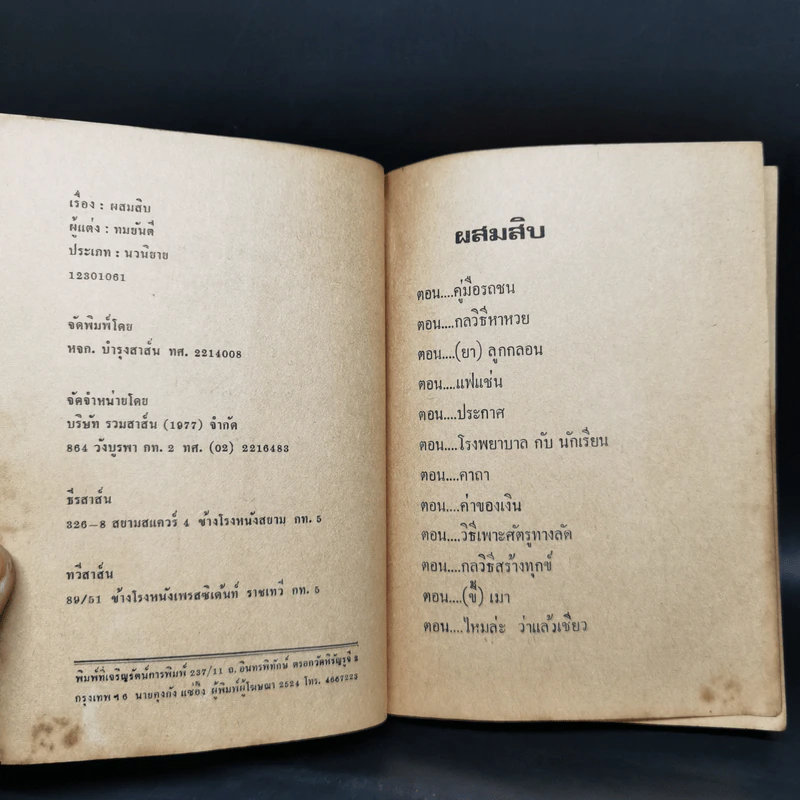 เรื่อง : ผสมสิบ
ผู้แต่ง : ทมยันตี
ประเภท : นวนิยาย
12301061
จัดพิมพ์โดย
หจก. บำรุงสาส์น ทศ. 2214008
จัดจำหน่ายโดย
บริษัท รวมสาส์น (1977) จำกัด
864 วังบูรพา กท. 2 ทศ. (02) 2216483
ธีรสาส์น
326-8 สยามสแควร์ 4 ข้างโรงหนังสยาม กท. 5
ทวีสาส์น
89/51 ข้างโรงหนังเพรสซิเด้นท์ ราชเทวี กท. 5
พิมพ์ที่เจริญรัตน์การพิมพ์ 237/11 ถ. อินทรพิทักษ์ ตรอกวัดหิรัญรูจี 3
กรุงเทพ ฯ 6 นายคุงกัง แซ่อึ้ง ผู้พิมพ์ผู้โฆษณา 2524 โทร. 4667223
ผสมสิบ
ตอน....คู่มือรถชน
ตอน....กลวิธีหาหวย
ตอน....(ยา) ลูกกลอน
ตอน....แฟแช่น
ตอน....ประกาศ
ตอน....โรงพยาบาล กับ นักเรียน
ตอน....คาถา
ตอน....ค่าของเงิน
ตอน....วิธีเพาะศัตรูทางลัด
ตอน....กลวิธีสร้างทุกข์
ตอน....(ขี้) เมา
ตอน....ไหมล่ะ ว่าแล้วเชียว